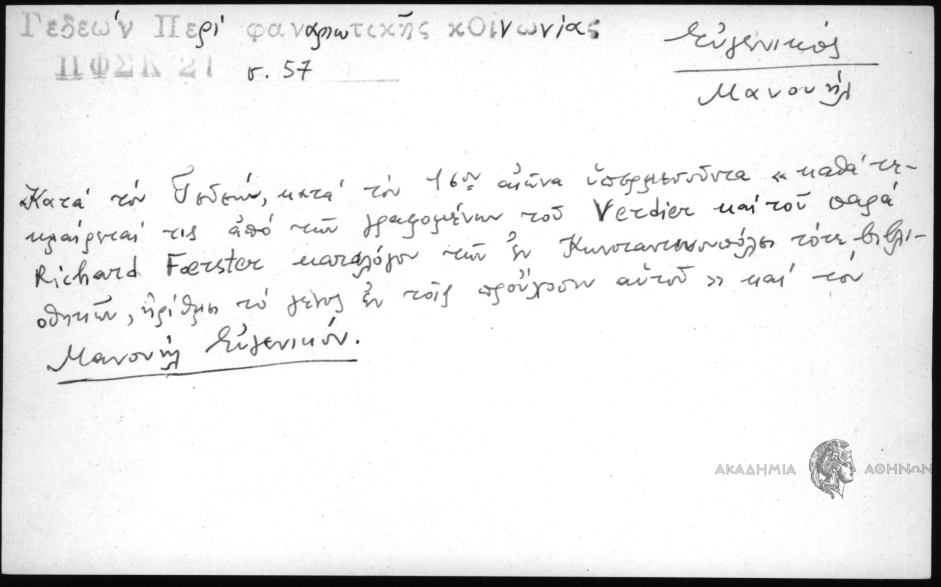 Γεδεών Περί φαναριωτικῆς κοινωνίας
ΠΦΣΚ 21 σ. 57
Εὐγενικός
Μανουήλ
«Κατά τόν Γεδεών, κατά τόν 16ον αἰῶνα ὑπερμεσοῦντα «καθά τε-
κμαίρεταί τις ἀπό τῶν γραφομένων τοῦ Verdier καί τοῦ παρά
Richard Fœrster καταλόγου τῶν ἐν Κωνσταντινουπόλει τότε βιβλι-
οθηκῶν, ἠρίθμει τό γένος ἐν τοῖς προὔχουσιν αὐτοῦ» καί τόν
Μανουήλ Εὐγενικόν.
ΑΚΑΔΗΜΙΑ ΑΘΗΝΩΝ